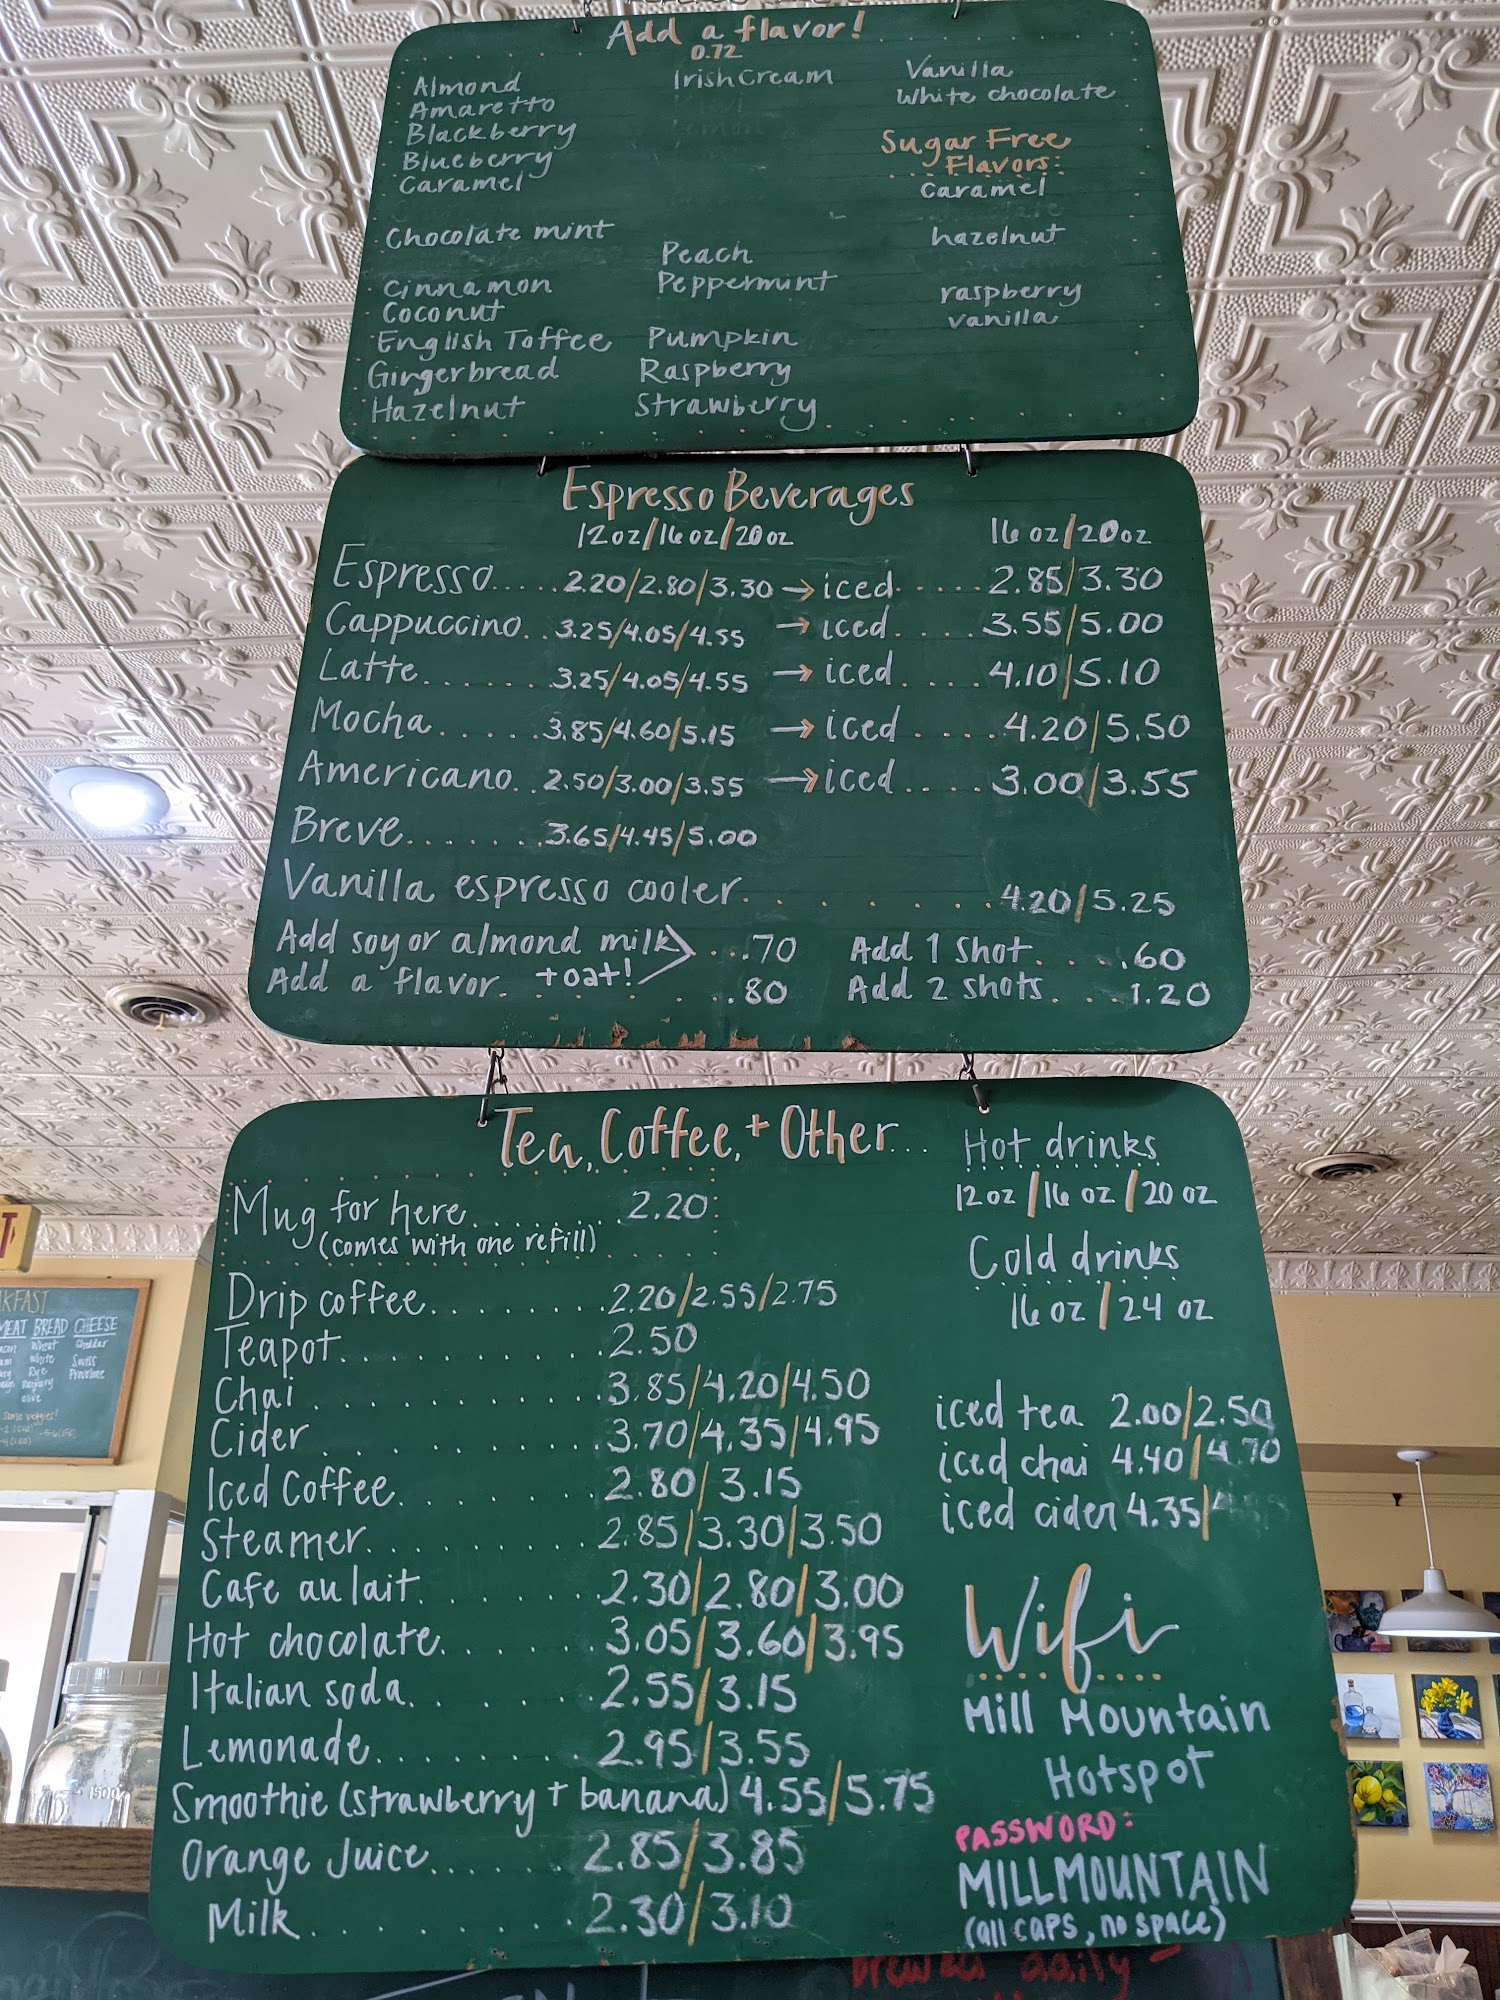 Add a flavor!
0.72
Almond
Amaretto
Blackberry
Blueberry
Caramel
Chocolate mint
Cinnamon
Coconut
English Toffee
Gingerbread
Hazelnut
Irish Cream
Peach
Peppermint
Pumpkin
Raspberry
Strawberry
Vanilla
White chocolate
Sugar Free
Flavors:
caramel
hazelnut
raspberry
vanilla
Espresso Beverages
12oz/16oz/20oz 16oz/20oz
Espresso..... 2.20/2.80/3.30 → iced..... 2.85/3.30
Cappuccino.. 3.25/4.05/4.55 → iced.... 3.55/5.00
Latte....... 3.25/4.05/4.55 → iced.... 4.10/5.10
Mocha...... 3.85/4.60/5.15 → iced.... 4.20/5.50
Americano.. 2.50/3.00/3.55 → iced.... 3.00/3.55
Breve....... 3.65/4.45/5.00
Vanilla espresso cooler......... 4.20/5.25
Add soy or almond milk ...70 Add 1 shot.....60
+oat!
Add a flavor.......80 Add 2 shots....1.20
Tea, Coffee, + Other...
Mug for here........2.20
(comes with one refill)
Drip coffee........2.20/2.55/2.75
Teapot..........2.50
Chai..........3.85/4.20/4.50
Cider..........3.70/4.35/4.95
Iced Coffee........2.80/3.15
Steamer.........2.85/3.30/3.50
Cafe au lait.......2.30/2.80/3.00
Hot chocolate......3.05/3.60/3.95
Italian soda.......2.55/3.15
Lemonade........2.95/3.55
Smoothie (strawberry + banana) 4.55/5.75
Orange Juice......2.85/3.85
Milk.........2.30/3.10
Hot drinks
12oz/16oz/20oz
Cold drinks
16oz/24oz
iced tea 2.00/2.50
iced chai 4.40/4.70
iced cider 4.35/
Wifi
Mill Mountain
Hotspot
PASSWORD:
MILLMOUNTAIN
(all caps, no space)
MEAT BREAD CHEESE
Wheat
White
Rye
Cheddar
Swiss
Provolone
brewed daily
1500